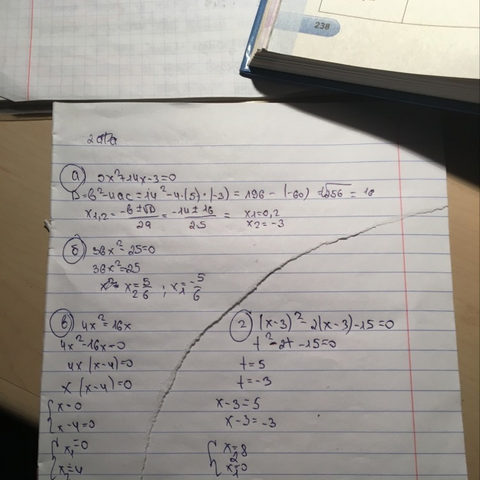 238
а) 5x²+14x-3=0
D=b²-4ac=14²-4·(5)·(-3)=196-(-60) √256=16
x₁,₂=-b±√D/2a=-14±16/2·5= x₁=0,2
x₂=-3
б) 36x²-25=0
36x²=25
x₂=5/6 ; x₁=-5/6
в) 4x²=16x
4x²-16x=0
4x(x-4)=0
x(x-4)=0
x=0
x-4=0
x₁=0
x₂=4
г) (x-3)²-2(x-3)-15=0
t²-2t-15=0
t=5
t=-3
x-3=5
x-3=-3
x₂=8
x₁=0